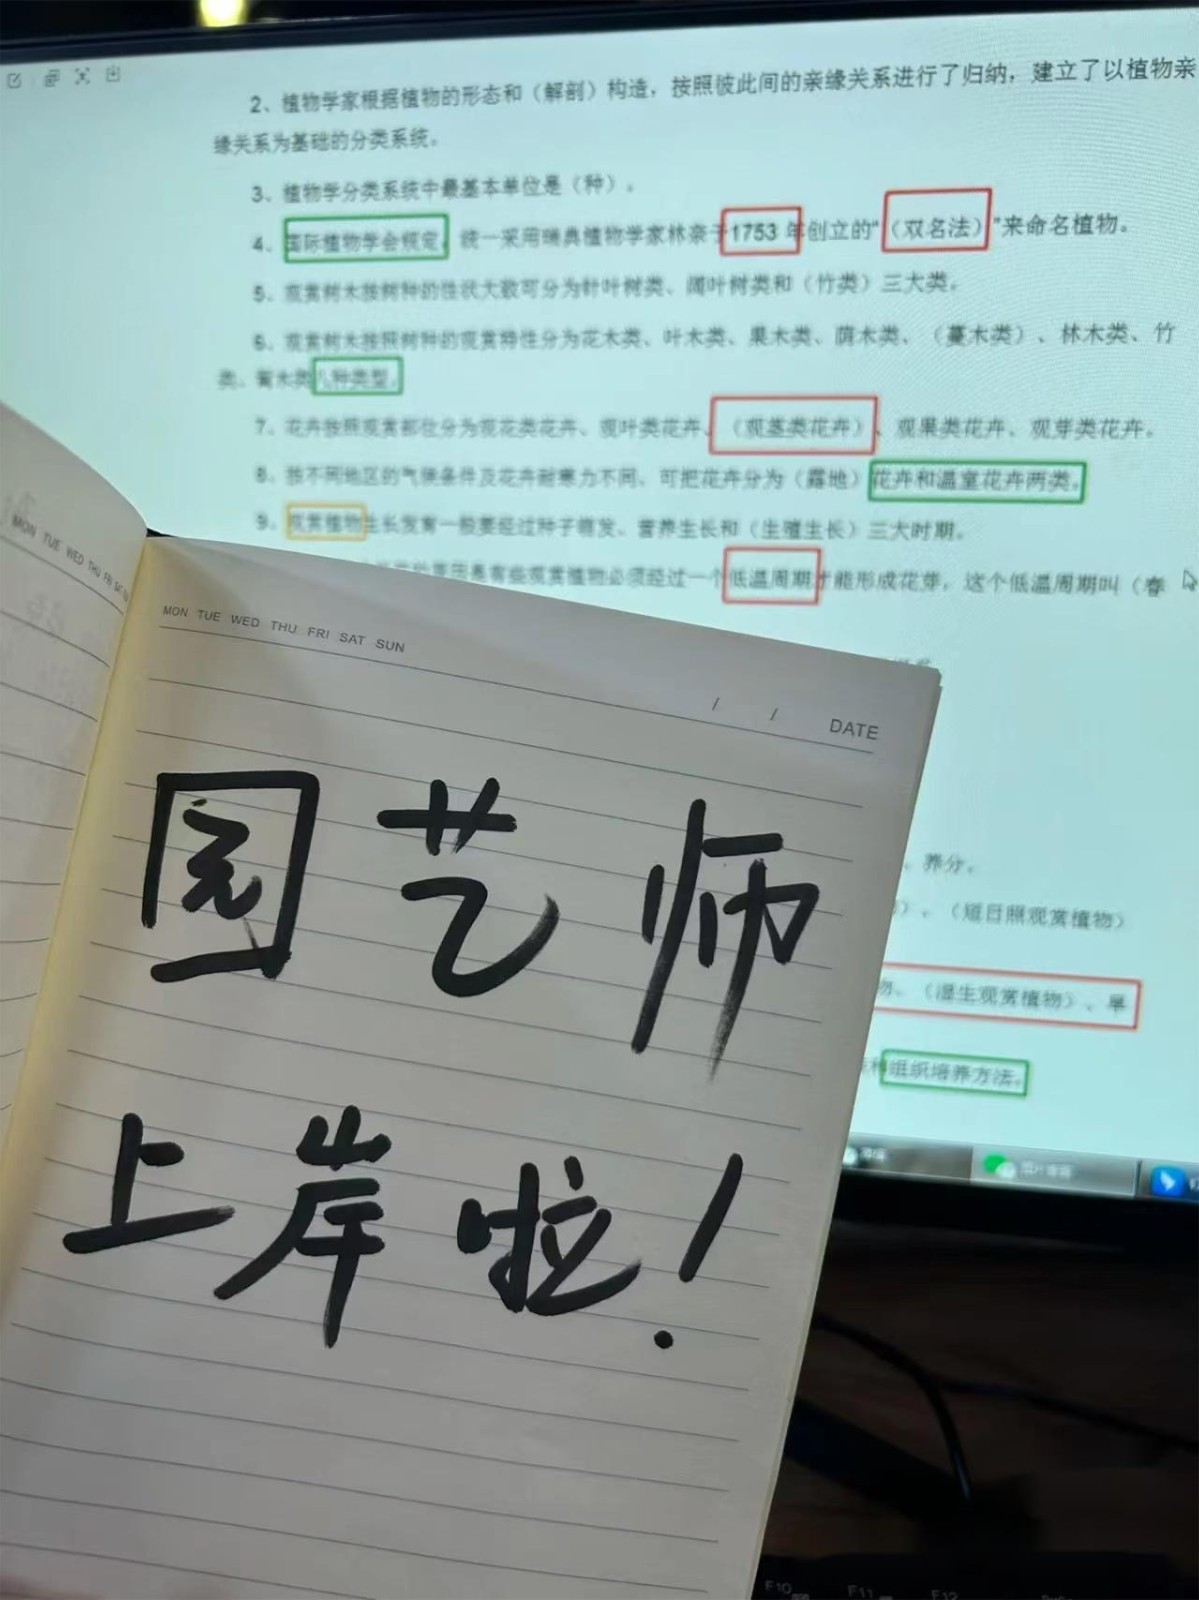 2、植物学家根据植物的形态和（解剖）构造，按照彼此间的亲缘关系进行了归纳，建立了以植物亲
缘关系为基础的分类系统。
3、植物学分类系统中最基本单位是（种）。
4、国际植物学会规定，统一采用瑞典植物学家林奈于1753 年创立的“（双名法）”来命名植物。
5、观赏树木按树种的性状大致可分为针叶树类、阔叶树类和（竹类）三大类。
6、观赏树木按照树种的观赏特性分为花木类、叶木类、果木类、荫木类、（蔓木类）、林木类、竹
类、篱木类八种类型。
7、花卉按照观赏部位分为观花类花卉、观叶类花卉、（观茎类花卉）、观果类花卉、观芽类花卉。
8、按不同地区的气候条件及花卉耐寒力不同、可把花卉分为（露地）花卉和温室花卉两类。
9、观赏植物生长发育一般要经过种子萌发、营养生长和（生殖生长）三大时期。
是有些观赏植物必须经过一个低温周期才能形成花芽，这个低温周期叫（春
、养分。
）、（短日照观赏植物）
物、（湿生观赏植物）、旱
组织培养方法。
MON TUE WED THU FRI SAT
MON TUE WED THU FRI SAT SUN
/ / DATE
园艺师
上岸啦！
F10 F11 F12